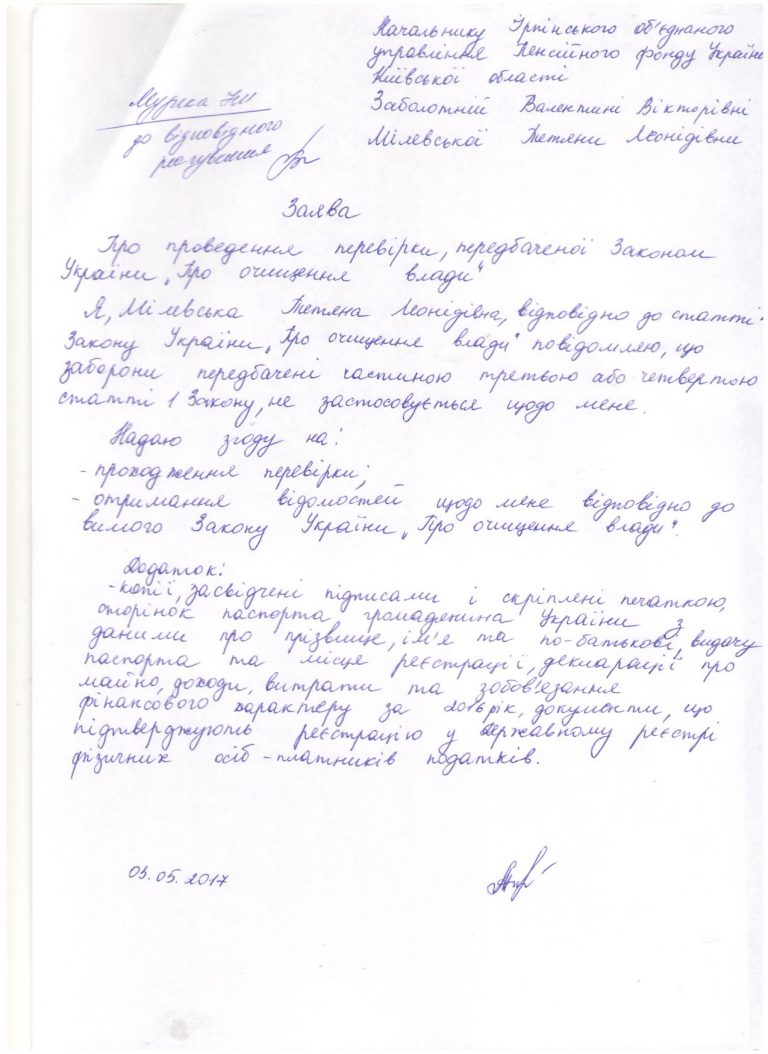 Начальнику Ірпінського об'єднаного
управління Пенсійного фонду Україн
Київської області
Заболотній Валентині Вікторівні
Мілевської Тетяни Леонідівни
до відповідного
реагування
Заява
Про проведення перевірки, передбаченої Законом
України „Про очищення влади"
Я, Мілевська Тетяна Леонідівна, відповідно до статті
Закону України „Про очищення влади" повідомляю, що
заборони передбачені частиною третьою або четвертою
статті 1 Закону, не застосовується щодо мене.
Надаю згоду на:
- проходження перевірки;
- отримання відомостей щодо мене відповідно до
вимого Закону України „Про очищення влади".
Додаток:
- копії, засвідчені підписами і скріплені печаткою,
сторінок паспорта громадянина України з
даними про прізвище, ім'я та по-батькові, видачу
паспорта та місце реєстрації, декларації про
майно, доходи, витрати та зобов'язання
фінансового характеру за 2016 рік, документи, що
підтверджують реєстрацію у Державному реєстрі
фізичних осіб - платників податків.
03.05.2017